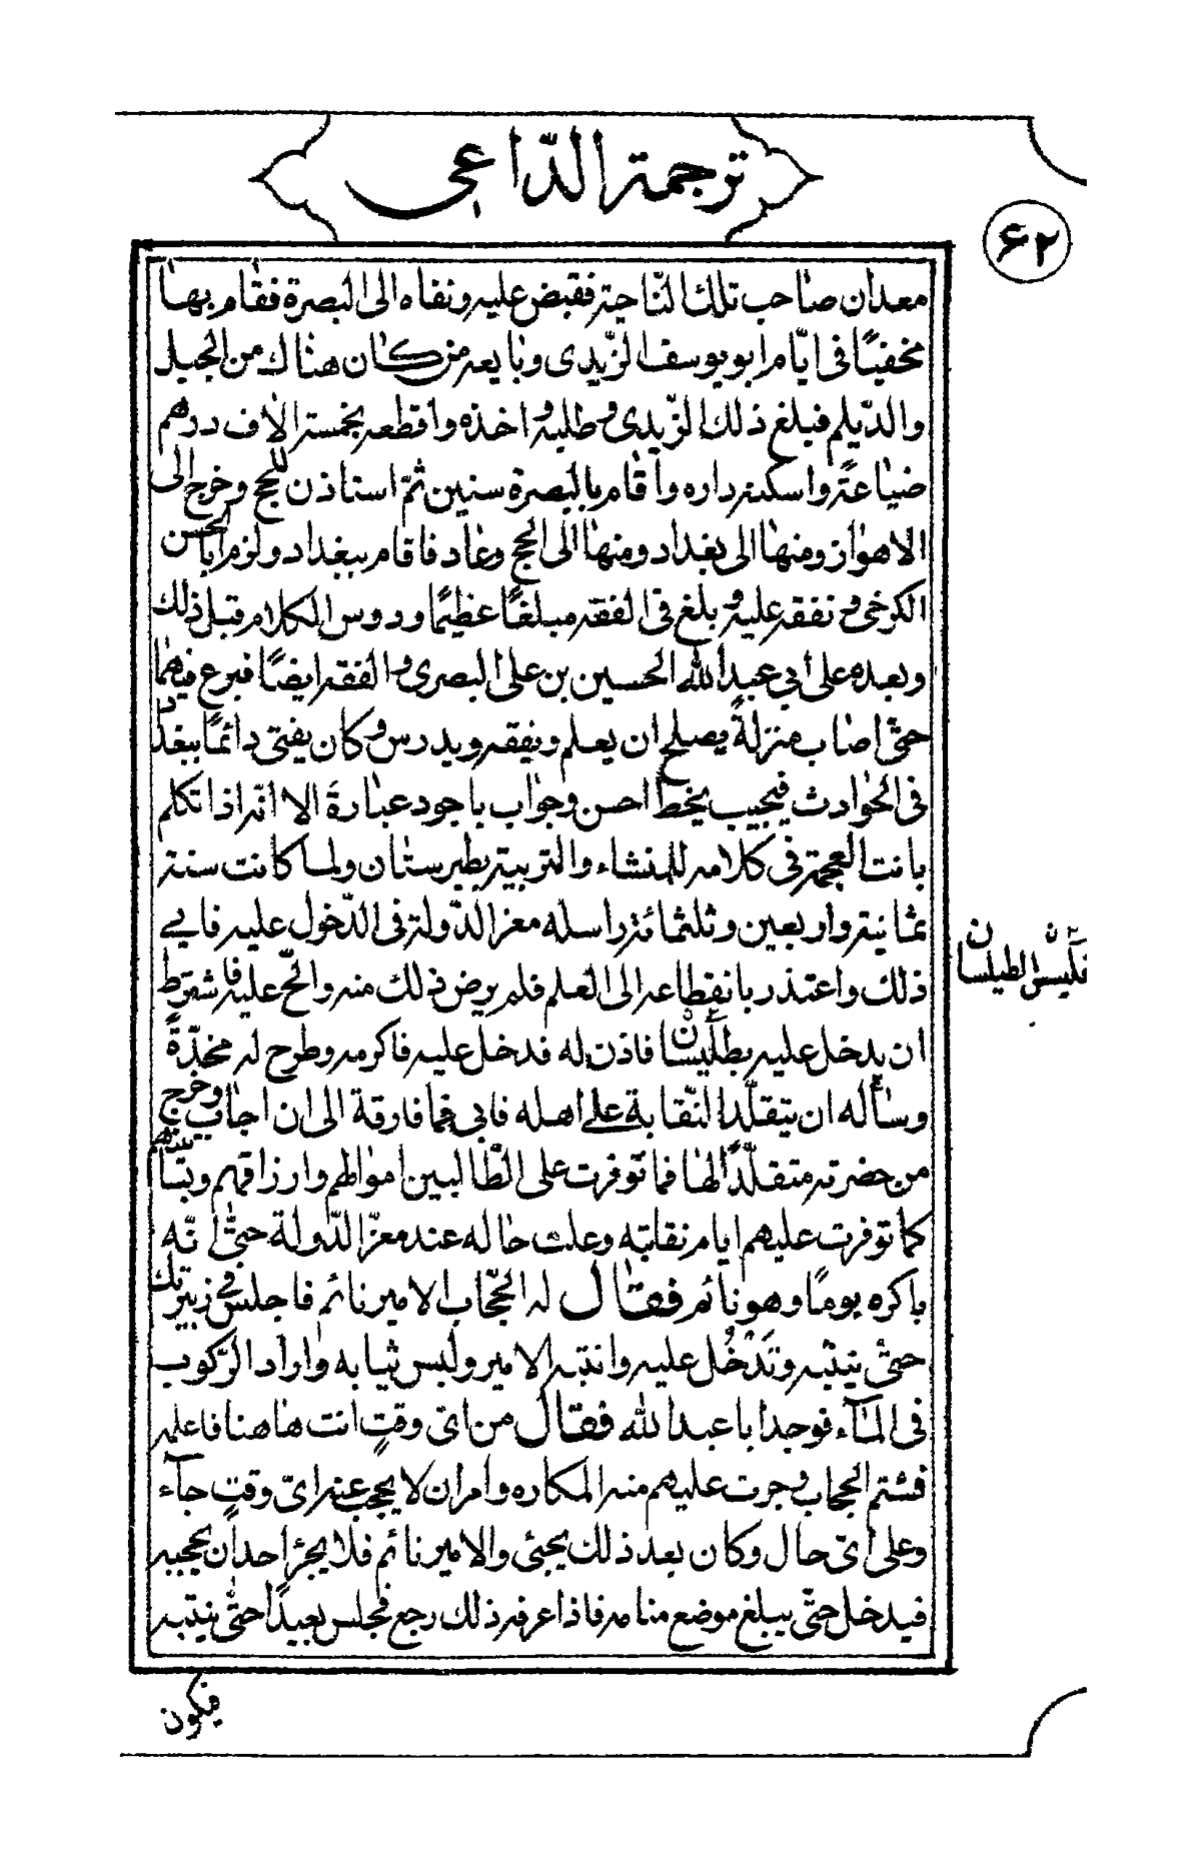 ترجمة الدّاعى
۶۲
معدان صاحب تلك النّاحية فقبض عليه ونفاه الى البصرة فقام بها
مخفيًا فى ايّام ابو يوسف الزّيدى وبايعه من كان هناك من الجيل
والدّيلم فبلغ ذلك الزّيدى وطلبه واخذه واقطعه بخمسة الاف درهم
ضياعةً واسكنه داره واقام بالبصرة سنين ثمّ استاذن للحج وخرج الى
الاهواز ومنها الى بغداد ومنها الى الحج وعاد فاقام ببغداد ولزم ابا الحسن
الكرخى وتفقه عليه وبلغ فى الفقه مبلغًا عظيمًا ودرس الكلام قبل ذلك
وبعده على ابي عبد الله الحسين بن على البصرى والفقه ايضًا فبرع فيهما
حتى اصاب منزلةً يصلح ان يعلم ويفقه ويدرس وكان يفتى دائمًا ببغداد
فى الحوادث فيجيب بخط احسن وجواب باجود عبارة الا انّه اذا تكلم
بانت العجمة فى كلامه للمنشاء والتربية بطبرستان ولما كانت سنة
ثمانية واربعين وثلثمائة راسله معز الدّولة فى الدّخول عليه فابى
ذلك واعتذر بانقطاعه الى العلم فلم يرض ذلك منه والحّ عليه فاشترط
ان يدخل عليه بطلّيسان فاذن له فدخل عليه فاكرمه وطرح له مخدّةً
وسأله ان يتقلّد النّقابة على اهله فابى فما فارقه الى ان اجاب وخرج
من حضرته متقلّدًا لها فما توفرت على الطّالبين اموالهم وارزاقهم وبساتينهم
كما توفرت عليهم ايام نقابته وعلت حاله عند معزّ الدّولة حتّى انّه
باكره يومًا وهو نائم فقال له الحجّاب الامير نائم فاجلس فى زبزبك
حتى ينتبه وتَدْخُل عليه وانتبه الامير ولبس ثيابه واراد الرّكوب
فى المآء فوجد ابا عبد الله فقال من اىّ وقتٍ انت هاهنا فاعلمه
فشتم الحجاب وجرت عليهم منه المكاره وامر ان لا يحجب عنه اىّ وقتٍ جآء
وعلى اىّ حال وكان بعد ذلك يجئى والامير نائم فلا يجرء احدٌ ان يحجبه
فيدخل حتّى يبلغ موضع منامه فاذا عرفه ذلك رجع فجلس بعيدًا حتّى ينتبه
الطيلسان
فيكون